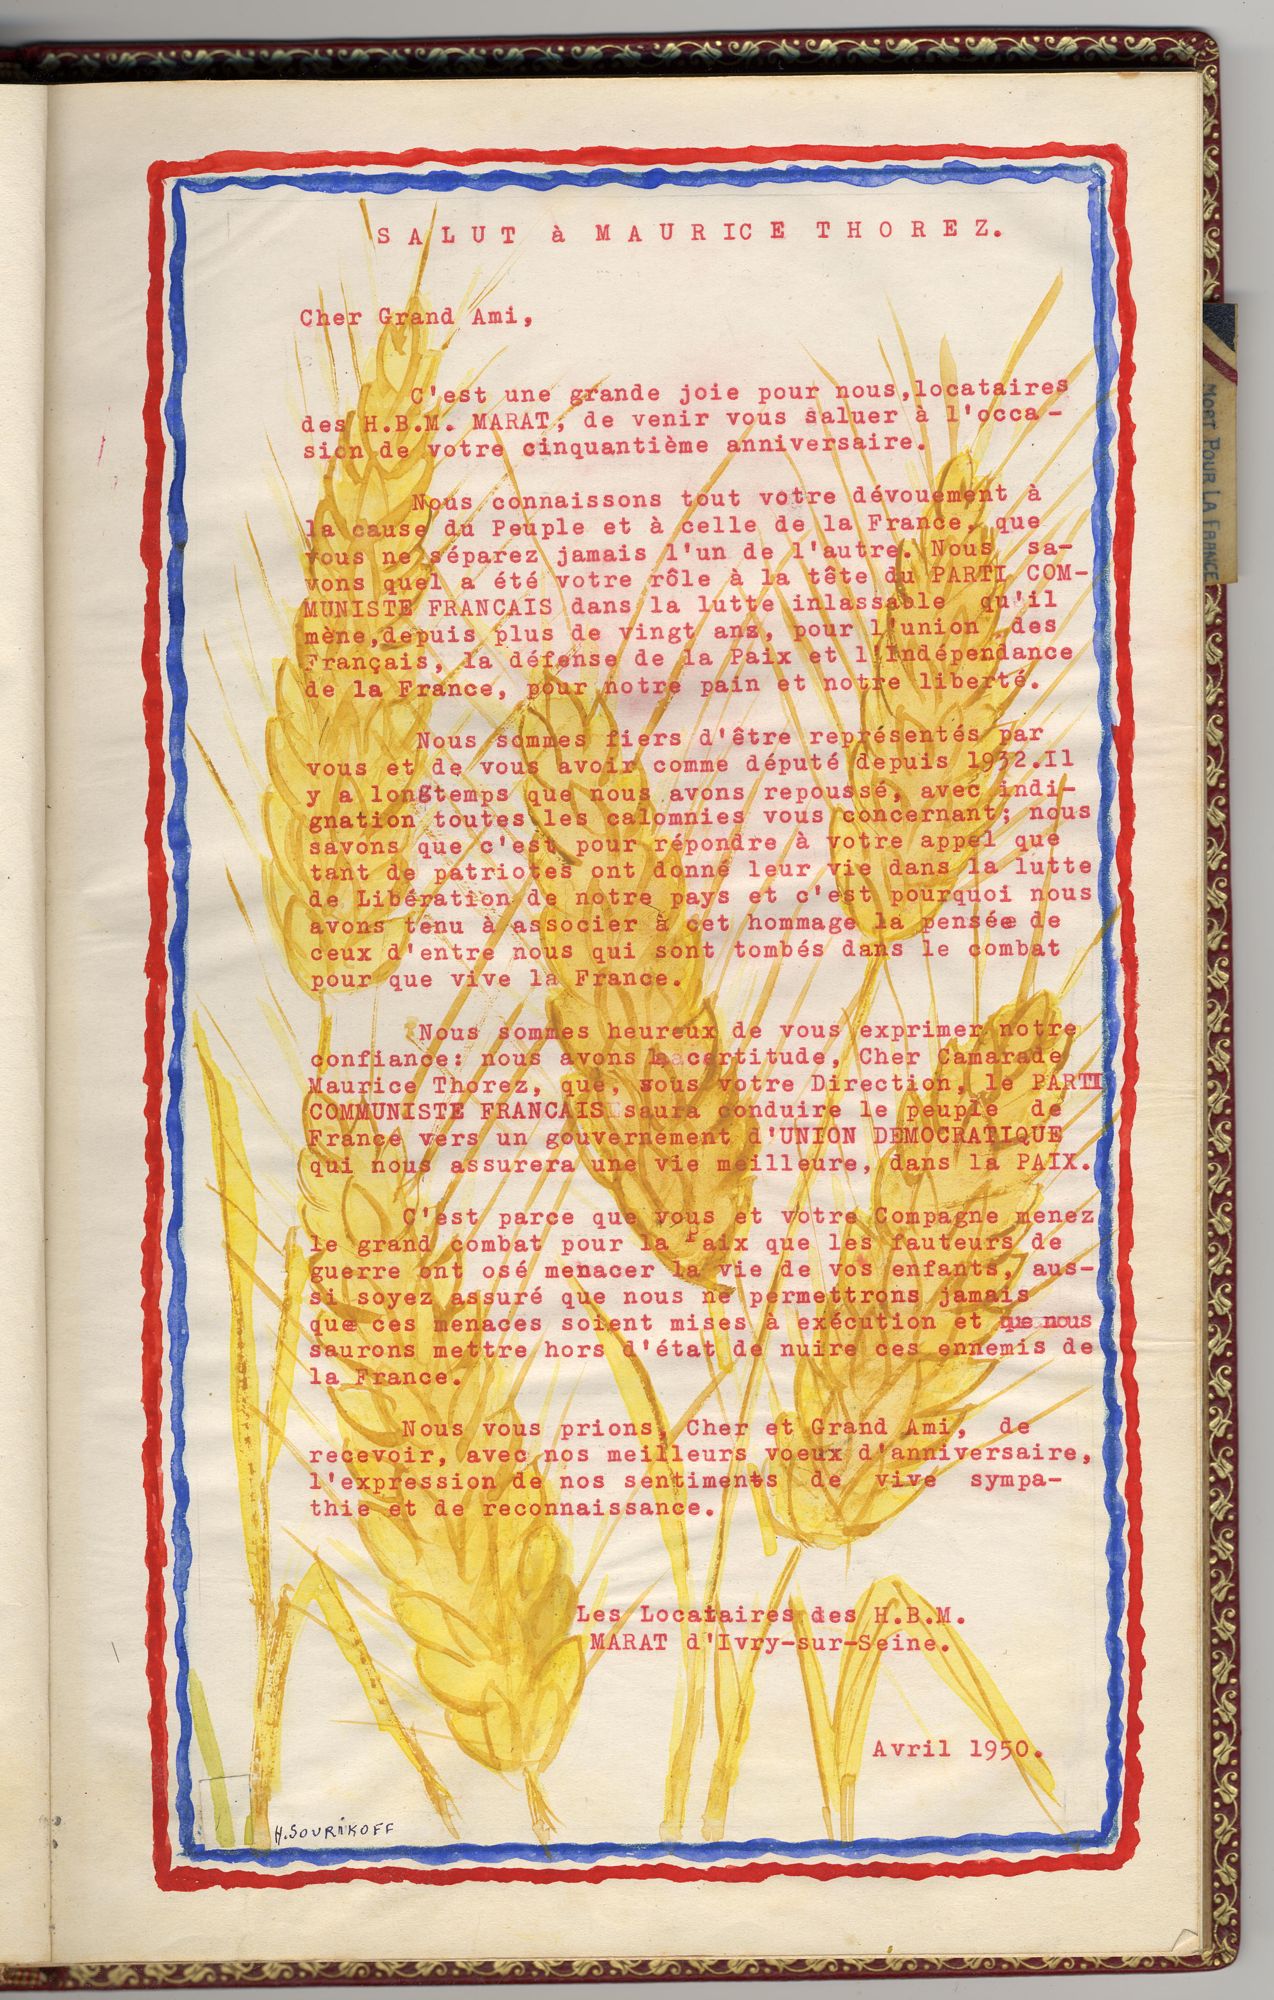 SALUT à MAURICE THOREZ.
Cher Grand Ami,
C'est une grande joie pour nous,locataires
des H.B.M. MARAT, de venir vous saluer à l'occa-
sion de votre cinquantième anniversaire.
Nous connaissons tout votre dévouement à
la cause du Peuple et à celle de la France, que
vous ne séparez jamais l'un de l'autre. Nous sa-
vons quel a été votre rôle à la tête du PARTI COM-
MUNISTE FRANCAIS dans la lutte inlassable qu'il
mène,depuis plus de vingt ans, pour l'union des
Français, la défense de la Paix et l'Indépendance
de la France, pour notre pain et notre liberté.
Nous sommes fiers d'être représentés par
vous et de vous avoir comme député depuis 1932.Il
y a longtemps que nous avons repoussé, avec indi-
gnation toutes les calomnies vous concernant; nous
savons que c'est pour répondre à votre appel que
tant de patriotes ont donné leur vie dans la lutte
de Libération de notre pays et c'est pourquoi nous
avons tenu à associer à cet hommage la pensée de
ceux d'entre nous qui sont tombés dans le combat
pour que vive la France.
Nous sommes heureux de vous exprimer notre
confiance: nous avons la certitude, Cher Camarade
Maurice Thorez, que, sous votre Direction, le PARTI
COMMUNISTE FRANCAIS saura conduire le peuple de
France vers un gouvernement d'UNION DEMOCRATIQUE
qui nous assurera une vie meilleure, dans la PAIX.
C'est parce que vous et votre Compagne menez
le grand combat pour la Paix que les fauteurs de
guerre ont osé menacer la vie de vos enfants, aus-
si soyez assuré que nous ne permettrons jamais
que ces menaces soient mises à exécution et que nous
saurons mettre hors d'état de nuire ces ennemis de
la France.
Nous vous prions, Cher et Grand Ami, de
recevoir, avec nos meilleurs voeux d'anniversaire,
l'expression de nos sentiments de vive sympa-
thie et de reconnaissance.
Les Locataires des H.B.M.
MARAT d'Ivry-sur-Seine.
Avril 1950.
H.SOURIKOFF
MORT POUR LA FRANCE